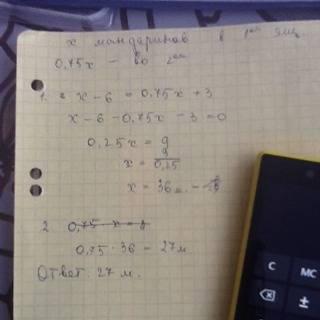 x мандаринов в 1ом ящ
0,75x - во 2ом
1. x - 6 = 0,75x + 3
x - 6 - 0,75x - 3 = 0
0,25x = 9
x = 9/0,25
x = 36 м. -
2. 0,75 x = 
0,75 · 36 = 27 м
Ответ: 27 м.
C MC
±